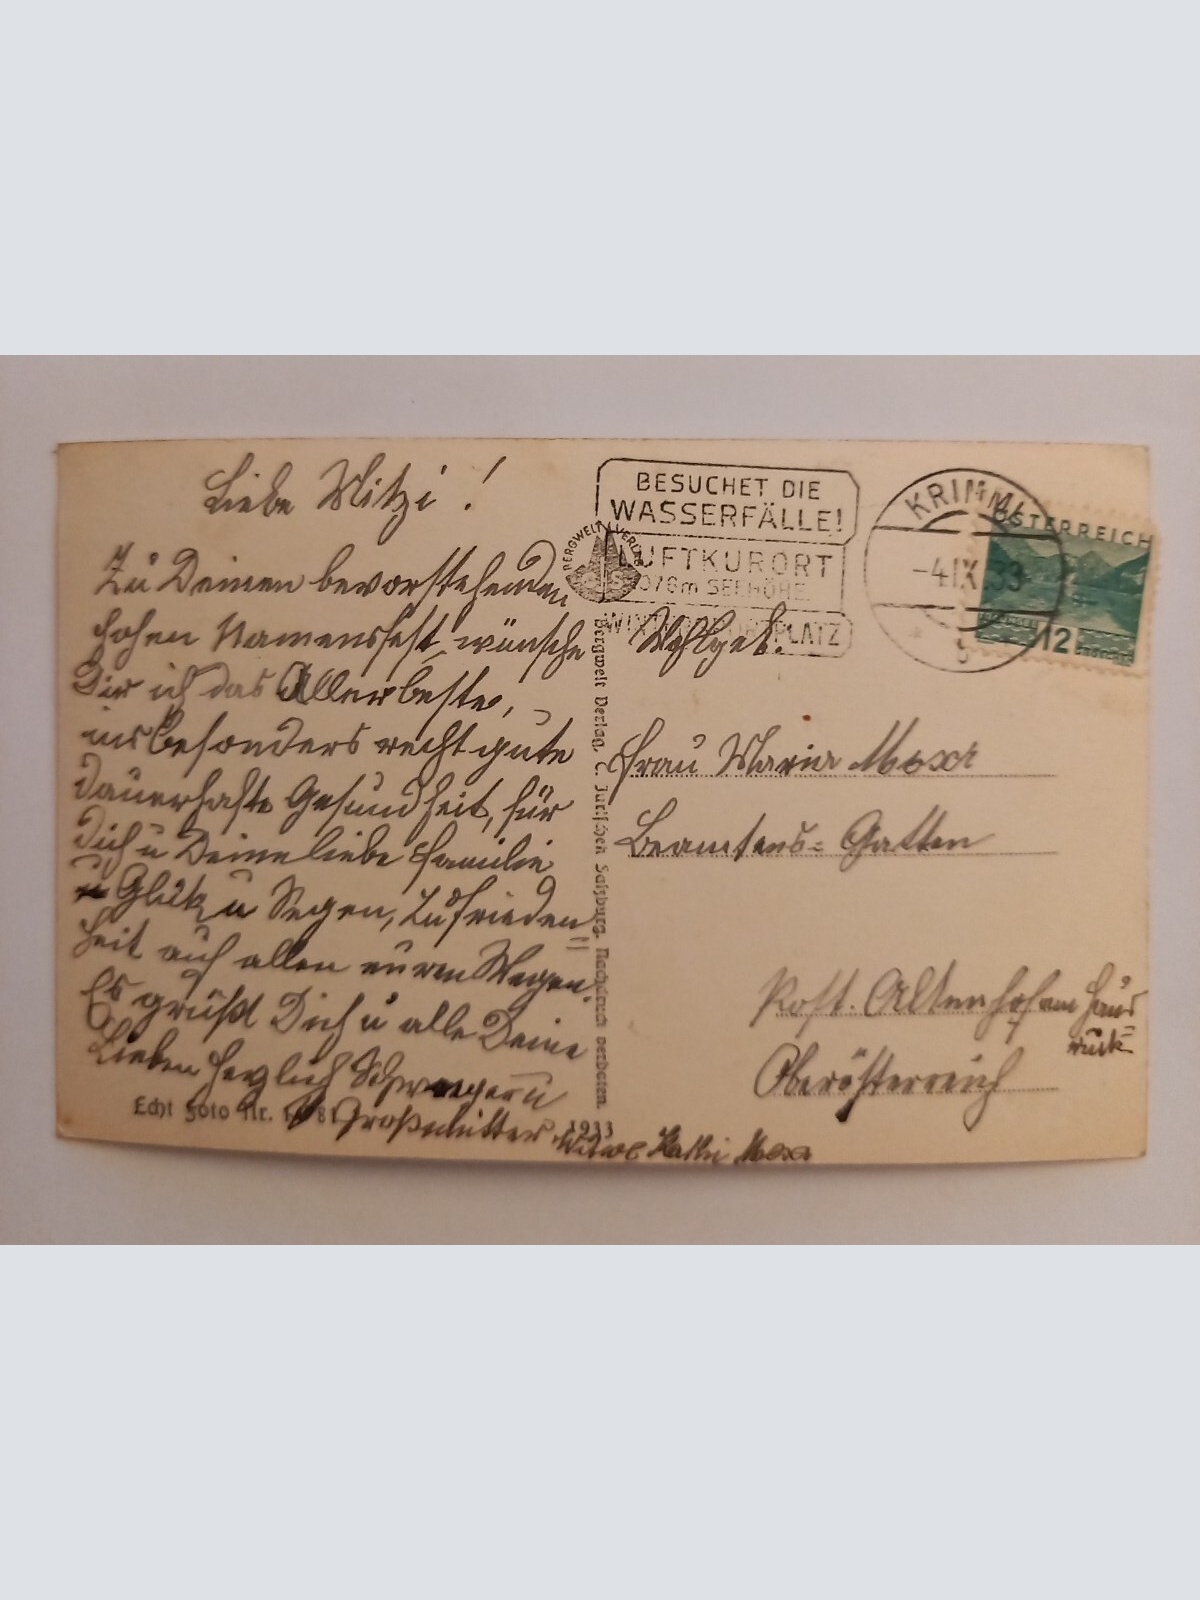 Liebe Mitzi!
Zu Deinen bevorstehenden
hohen Namensfest wünsche
Dir ich das Allerbeste,
insbesonders recht gute
dauerhafte Gesundheit, für
Dich u Deine liebe Familie
u Glük u Segen, Zufrieden=
heit auf allen euren Wegen.
Es grüßt Dich u alle Deine
Lieben herzlich Schwieger u
Großmutter
Echt Foto Nr.
1933
BERGWELT VERLAG
Bergwelt Verlag, C. Jurischek Salzburg. Nachdruck verboten.
BESUCHET DIE
WASSERFÄLLE!
LUFTKURORT
SEEHÖHE
KRIMML
-4.IX.33
ÖSTERREICH
12
Wohlgeb.
Frau Maria
Beamtens=Gatten
Post. Altenhof am Haus
ruck
Oberösterreich